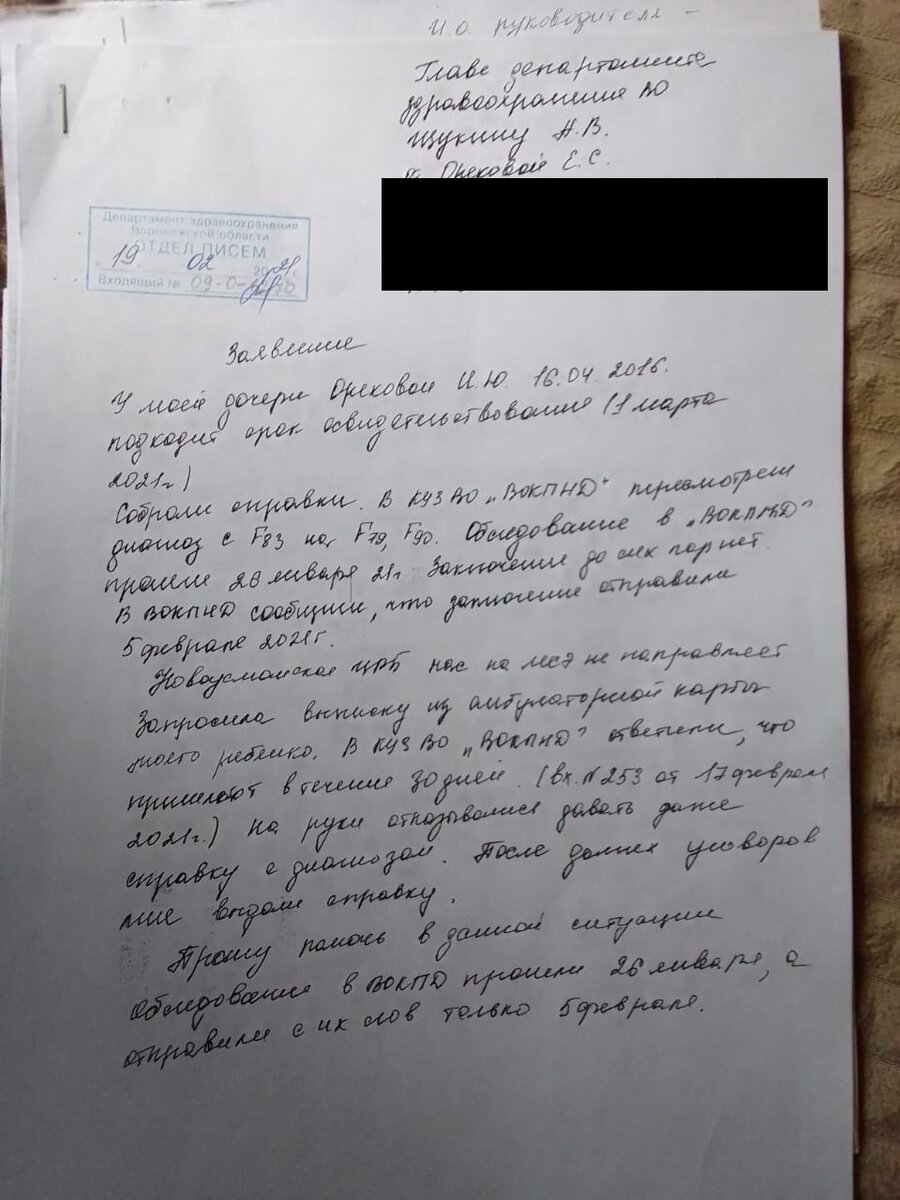 И.о. руководителя -
Главе департамента
здравоохранения ВО
Щукину А.В.
Ореховой Е.С.
Департамент здравоохранения
Воронежской области
ОТДЕЛ ПИСЕМ
19 02 2021 г.
Входящий № 09-0-
Заявление
У моей дочери Ореховой И.Ю. 16.04.2016.
подходит срок освидетельствования (1 марта
2021г)
Собрали справки. В КУЗ ВО „ВОКПНД" пересмотрели
диагноз с F83 на F79, F90. Обследование в „ВОКПНД"
прошли 26 января 21г Заключение до сих пор нет.
В ВОКПНД сообщили, что заключение отправили
5 февраля 2021г.
Новоусманская ЦРБ нас на мсэ не направляет
Запросила выписку из амбулаторной карты
моего ребенка. В КУЗ ВО „ВОКПНД" ответили, что
пришлют в течение 30 дней. (вх. №253 от 17 февраля
2021г.) На руки отказывались давать даже
справку с диагнозом. После долгих уговоров
мне выдали справку.
Прошу помочь в данной ситуации
Обследование в ВОКПД прошли 26 января, а
отправили с их слов только 5 февраля.